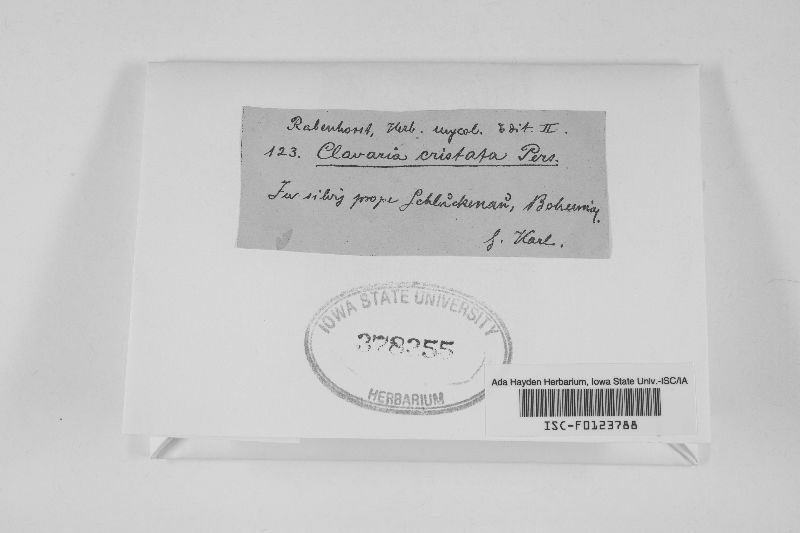 Rabenhorst, Herb. mycol. Edit. II.
123. Clavaria cristata Pers.
In silvis prope Schluckenau, Bohemia,
Karl.
IOWA STATE UNIVERSITY
378355
HERBARIUM
Ada Hayden Herbarium, Iowa State Univ.-ISC/IA
ISC-F0123788